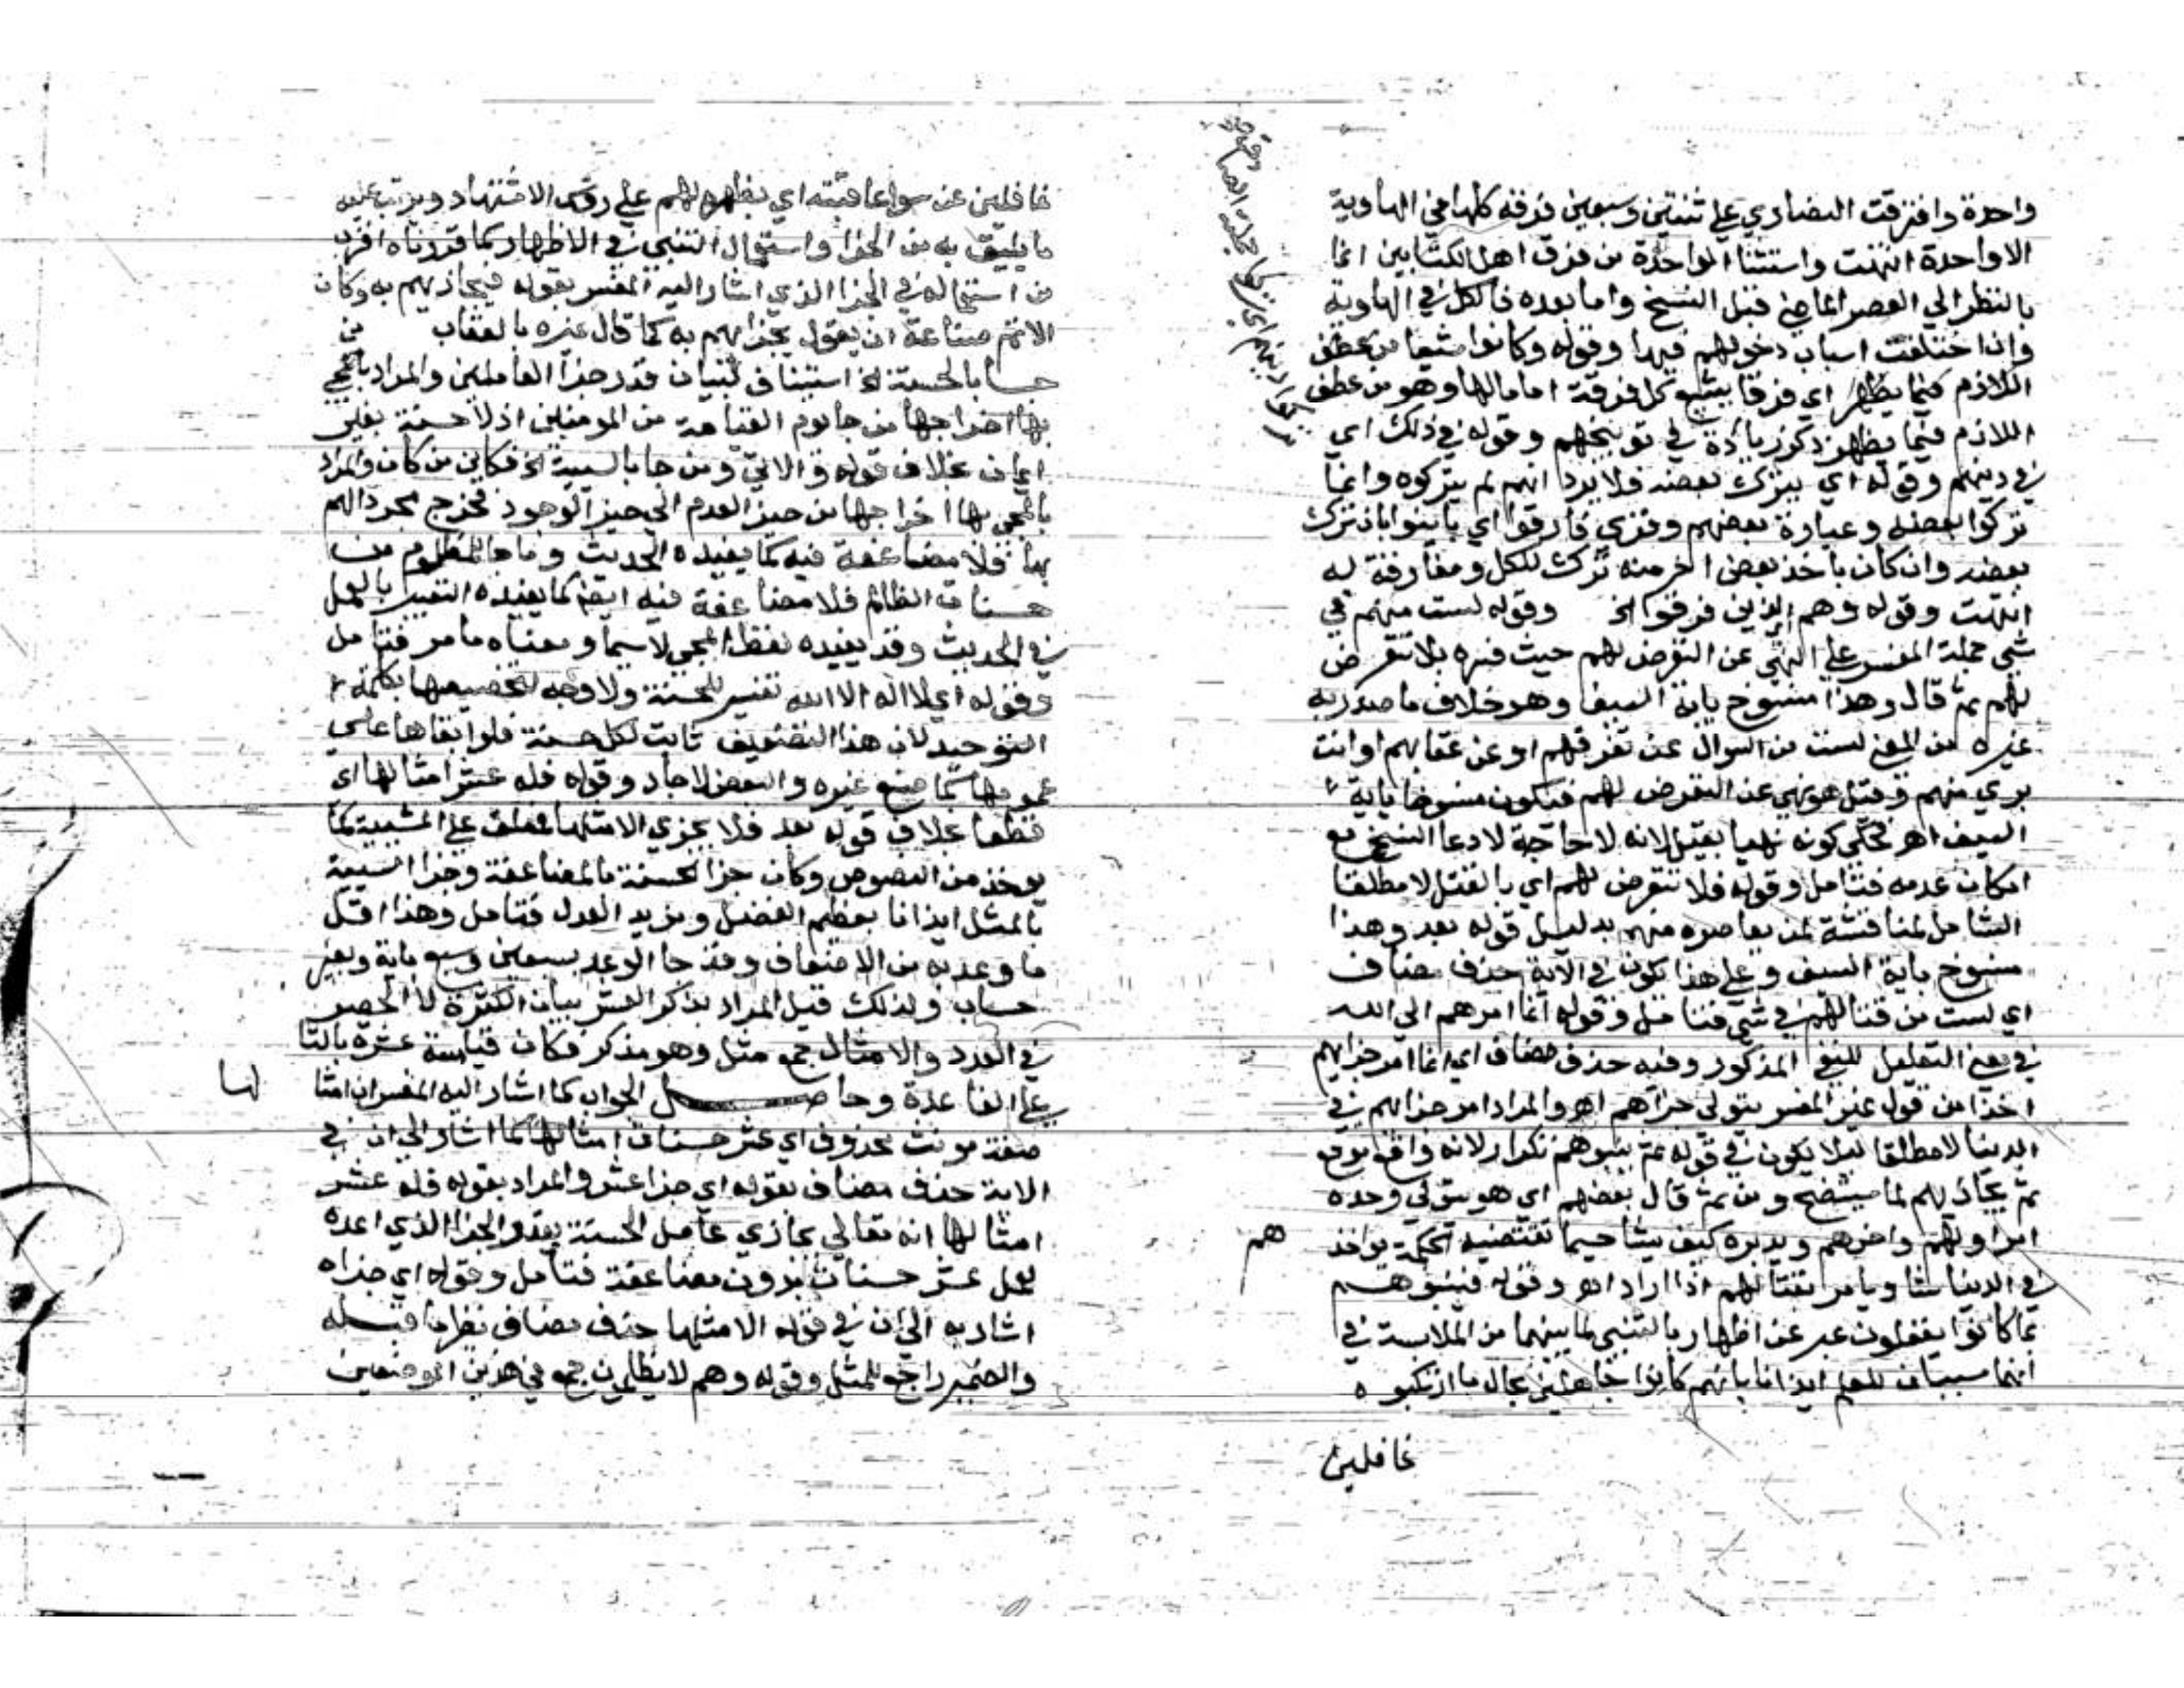 واحدة وافترقت النصاري علي ثنتين وسبعين فرقه كلها في الهاوية
الا واحدة انتهت واستثنا الواحدة من فرق اهل الكتابين انما
بالنظر الي العصر الماضي قبل النسخ واما بعده فالكل في الهاوية
وان اختلفت اسباب دخولهم فيها وقوله وكانوا شيعا من عطف
اللازم فيما يظهر اي فرقا يتشيع كل فرقة اماما لها وهو من عطف
اللازم فيما يظهر ذكر زيادة في توبيخهم وقوله في ذلك اي
في دينهم وقوله اي بترك بعضه فلا يرد انهم لم يتركوه وانما
تركوا بعضه وعبارة بعضهم وقري فارقوا اي باينوا بان ترك
بعضه وان كان ياخذ بعض اخر منه ترك للكل ومفارقة له
انتهت وقوله وهم الذين فرقوا الخ وقوله لست منهم في
شي حملة المفسر علي النهي عن التعرض لهم حيث فسره بلا تتعرض
لهم ثم قال وهذا منسوخ باية السيف وهو خلاف ما صدر به
غيره من المعني لست من السوال عن تفرقهم او عن عقابهم او انت
بري منهم وقيل هو نهي عن التعرض لهم فيكون منسوخا باية
السيف اهـ فحكي كونه نهيا بقيل لانه لا حاجة لادعا النسخ مع
امكان عدمه فتامل وقوله فلا تتعرض لهم اي بالقتل لا مطلقا
الشامل لمناقشة لمن يعاصره منهم بدليل قوله بعد وهذا
منسوخ باية السيف وعلي هذا يكون في الاية حذف مضاف
اي لست من قتالهم في شي فتامل وقوله انما امرهم الي الله
في معني التعليل للنفي المذكور وفيه حذف مضاف اي انما امر جزايهم
اخذا من قول غير المفسر يتولي جزاهم اهـ والمراد امر جزايهم في
الدنيا لا مطلقا ليلا يكون في قوله ثم ينبوهم تكرار لانه واقع موقع
ثم يجازيهم لما سيتضح ومن ثم قال بعضهم اي هو يتولي وحده
امر اولهم واخرهم ويدبره كيف يشا حسبما تقتضيه الحكمة يواخذ
هم
في الدنيا شا ويامر بقتالهم اذا اراد اهـ وقوله فينبوهم
بما كانوا يفعلون عبر عن اظهار بالتنبي لما بينهما من الملابسة في
انهما سببان للعلم ايذانا بانهم كانوا جاهلين بحال ما ارتكبوه
غافلين
غافلين عن سوء عاقبته اي يظهره لهم علي روس الاشهاد ويرتب عليه
ما يليق به من الجزا واستعمال التنبي في الاظهار كما قررناه اقرب
من استعماله في الجزا الذي اشار اليه المفسر بقوله فيجازيهم به وكان
الاتم صناعة ان يقول يجزيهم به كما قال غيره بالعقاب من
جا بالحسنة الخ استيناف لتبيان قدر جزا العاملين والمراد بالمجي
بها اخراجها من جا يوم القيامة من المومنين اذ لا حسنة بغير
ايمان بخلاف قوله والاتي ومن جا بالسيية الخ فكاين من كان والمراد
بالمجي بها اخراجها من حيز العدم الي حيز الوجود فخرج مجرد الهم
بها فلا مضاعفة فيه كما يفيده الحديث وما جا للمظلوم من
حسنات الظالم فلا مضاعفة فيه ايضا كما يفيده التعبير بالعمل
في الحديث وقد يفيده لفظ المجي لا سيما ومعناه ما مر فتامل
وقوله اي لا اله الا الله تفسير للحسنة ولا وجه لتخصيصها بكلمة
التوحيد لان هذا التضعيف ثابت لكل حسنة فلو ابقاها علي
عمومها كما صنع غيره والبعض لاجاد وقوله فله عشر امثالها اي
قطعا بخلاف قوله بعد فلا يجزي الا مثلها فمعلق علي المشيية كما
يوخذ من النصوص وكان جزا الحسنة بالمضاعفة وجزا السيية
بالمثل ايذانا بعظيم الفضل ومزيد العدل فتامل وهذا اقل
ما وعد به من الاضعاف وقد جا الوعد بسبعين وسبعماية وبغير
حساب ولذلك قيل المراد بذكر العشر بيان الكثرة لا الحصر
في العدد والامثال جمع مثل وهو مذكر فكان قياسه عشرة بالتا
علي القاعدة وحاصل الجواب كما اشار اليه المفسر ان امثا
لها
صفة مونث محذوف اي عشر حسنات امثالها كما اشار الي ان في
الاية حذف مضاف بقوله اي جزا عشر والمراد بقوله فله عشر
امثالها انه تعالي يجازي عامل الحسنة بقدر الجزا الذي اعده
لعمل عشر حسنات بدون مضاعفة فتامل وقوله اي جزاه
اشار به الي ان في قوله الا مثلها حذف مضاف نظير ما قبله
والضمير راجع للمثل وقوله وهم لا يظلمون جمع في هذين الموضعين